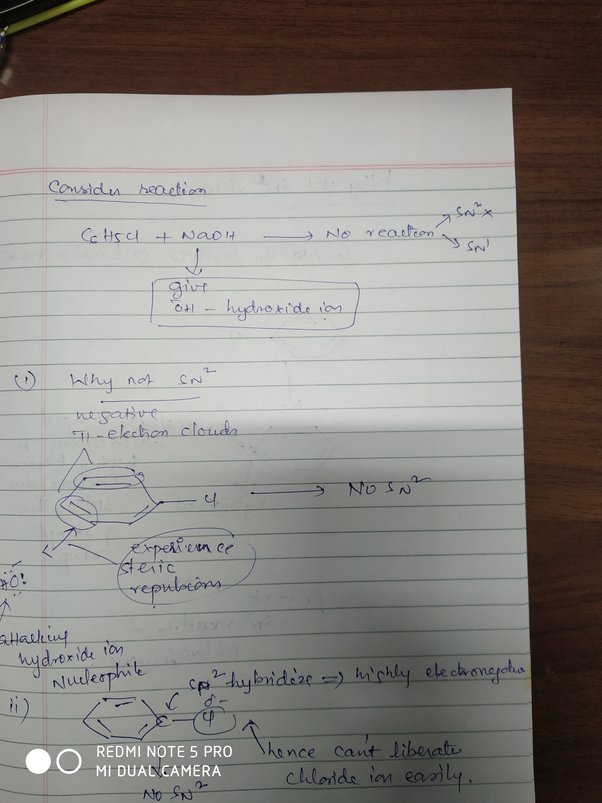 Consider reaction
C6H5Cl + NaOH → No reaction
SN2 ×
SN1
give
OH - hydroxide ion
(i) Why not SN2
negative
π-electron clouds
Cl → NO SN2
experience
steric
repulsions
HO:
attacking
hydroxide ion
Nucleophile
ii) sp2 hybridize ⇒ highly electronegative
C δ-
Cl
hence can't liberate
chloride ion easily.
NO SN2
REDMI NOTE 5 PRO
MI DUAL CAMERA